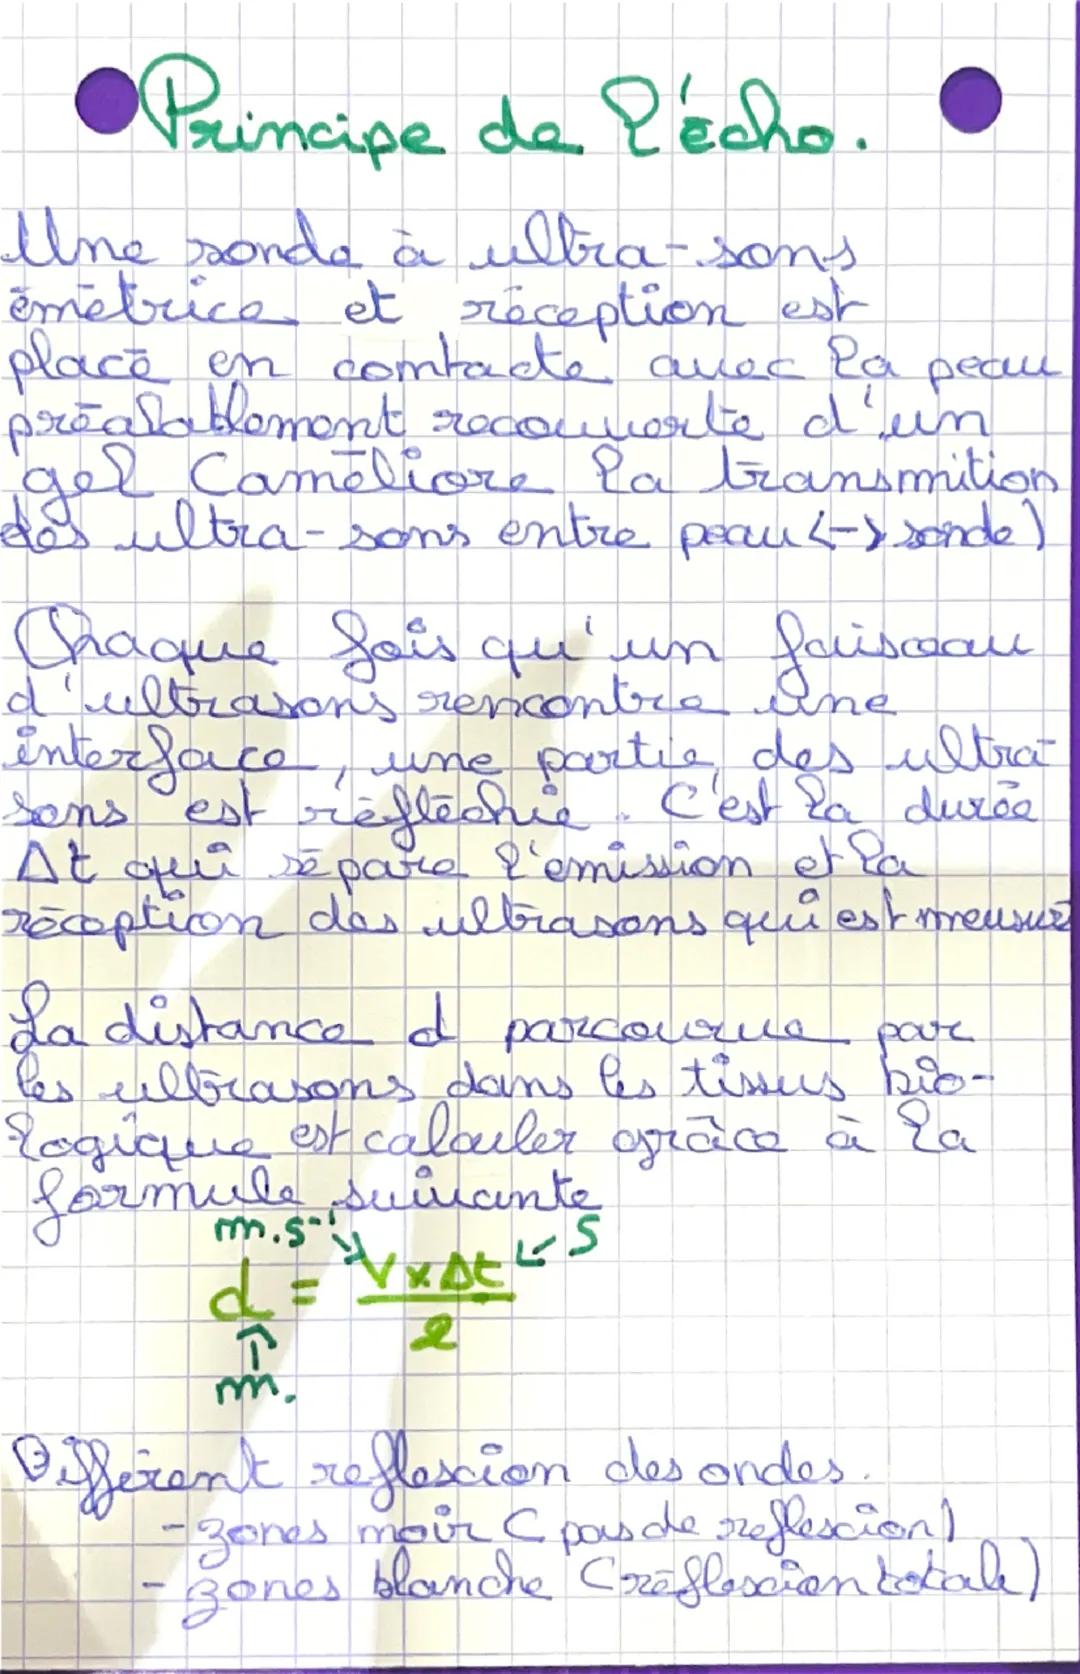 Principe de l'écho.
Une sonde à ultra-sons
émetrice et réception est
placé en contacte avec la peau
préalablement recouverte d'un
gel (améliore la transmition
des ultra-sons entre peau <-> sonde)
Chaque fois qu'un faisceau
d'ultrasons rencontre une
interface, une partie des ultra-
sons est réfléchie. C'est la durée
Δt qui sépare l'émission et la
réception des ultrasons qui est mesuré
La distance d parcourue par
les ultrasons dans les tissus bio-
logique est calculer grâce à la
formule suivante
m.s⁻¹ ↘ ↙ s
d = V x Δt
2
↑
m.
Différent reflescion des ondes.
- zones noir (pas de reflescion)
- zones blanche (réflescion totale)